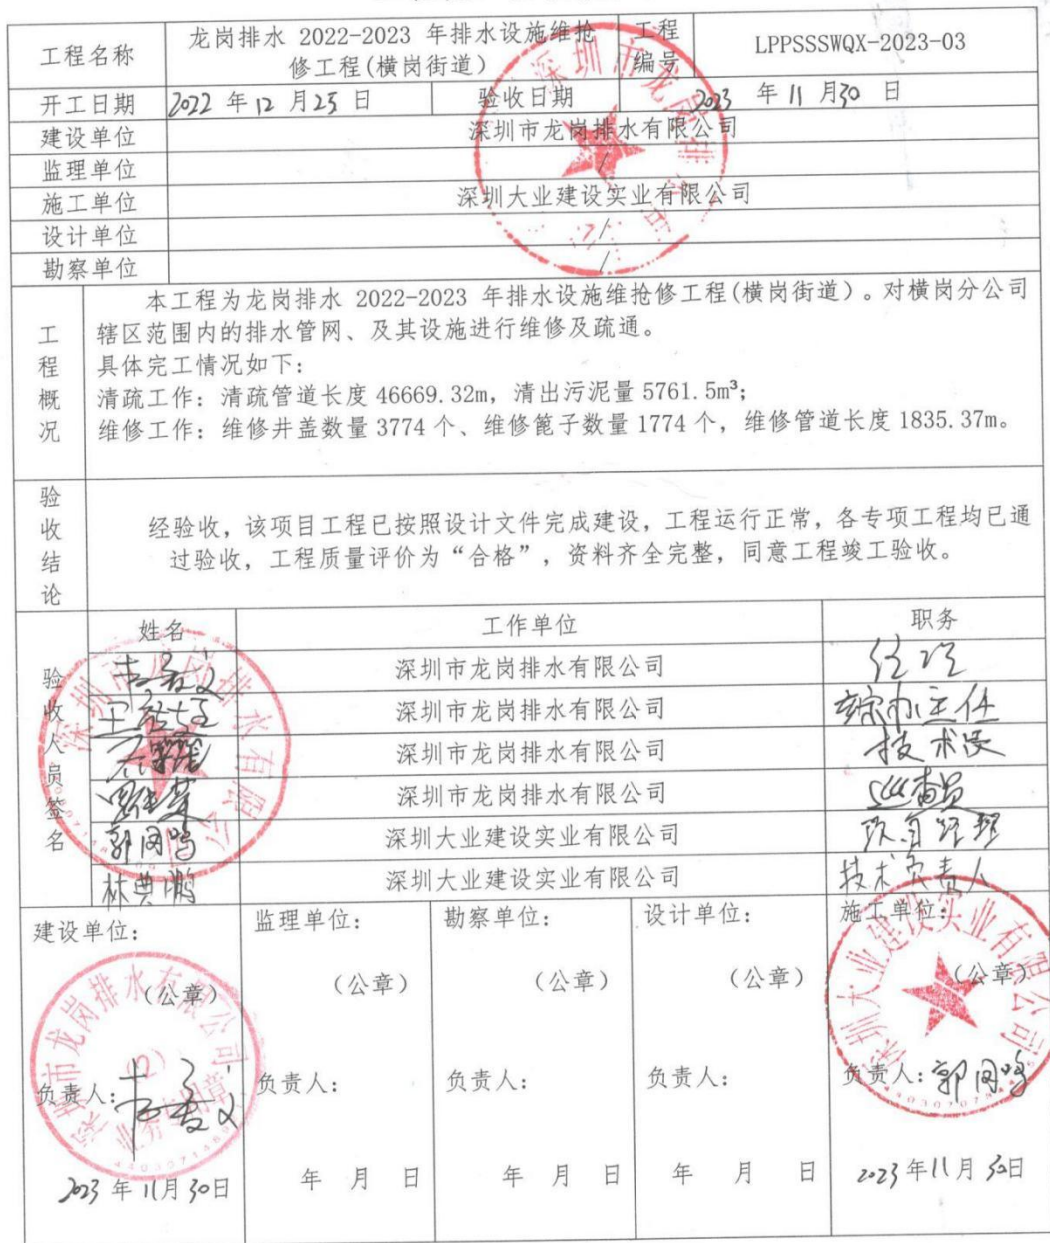 工程名称 龙岗排水 2022-2023 年排水设施维抢修工程(横岗街道) 工程编号 LPPSSSWQX-2023-03
开工日期 2022 年 12 月 25 日 验收日期 2023 年 11 月 30 日
建设单位 深圳市龙岗排水有限公司
监理单位 /
施工单位 深圳大业建设实业有限公司
设计单位 /
勘察单位 /
工程概况
本工程为龙岗排水 2022-2023 年排水设施维抢修工程(横岗街道)。对横岗分公司
辖区范围内的排水管网、及其设施进行维修及疏通。
具体完工情况如下:
清疏工作: 清疏管道长度 46669.32m, 清出污泥量 5761.5m³;
维修工作: 维修井盖数量 3774 个、维修篦子数量 1774 个, 维修管道长度 1835.37m。
验收结论
经验收, 该项目工程已按照设计文件完成建设, 工程运行正常, 各专项工程均已通
过验收, 工程质量评价为“合格”, 资料齐全完整, 同意工程竣工验收。
验收人员签名
姓名 工作单位 职务
深圳市龙岗排水有限公司
深圳市龙岗排水有限公司
深圳市龙岗排水有限公司 技术员
深圳市龙岗排水有限公司
郭闰鸣 深圳大业建设实业有限公司 项目经理
林典鹏 深圳大业建设实业有限公司 技术负责人
建设单位: 监理单位: 勘察单位: 设计单位: 施工单位:
(公章) (公章) (公章) (公章) (公章)
负责人: 负责人: 负责人: 负责人: 负责人: 郭闰鸣
2023 年 11 月 30 日 年 月 日 年 月 日 年 月 日 2023 年 11 月 30 日
深圳市龙岗排水有限公司
深圳大业建设实业有限公司